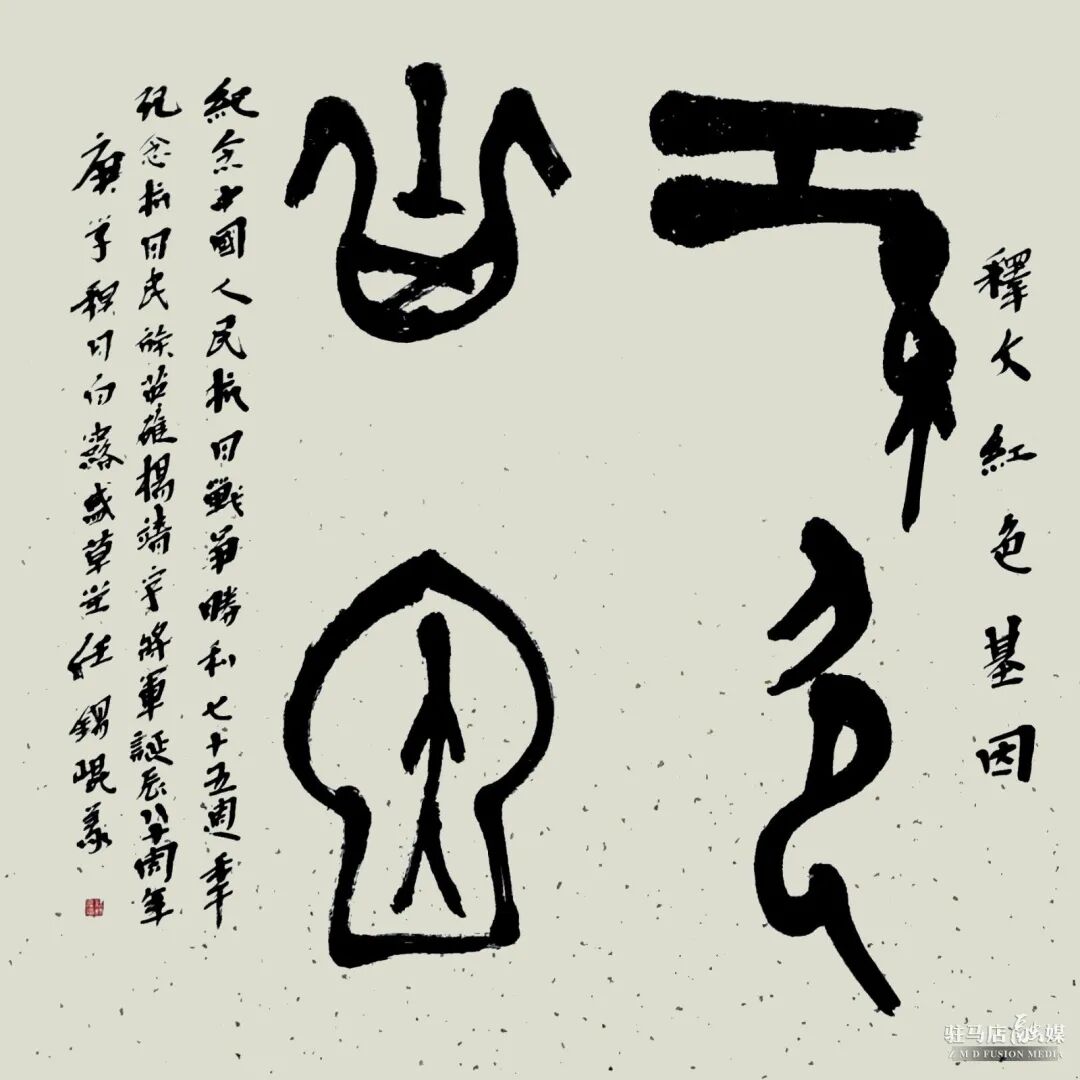 釋文紅色基因
紅色
基因
紀念中國人民抗日戰爭勝利七十五週年
紀念抗日民族英雄楊靖宇將軍誕辰八十周年
庚子秋日白露盛草堂任錫崐篆
驻马店融媒
Z M D FUSION MEDIA